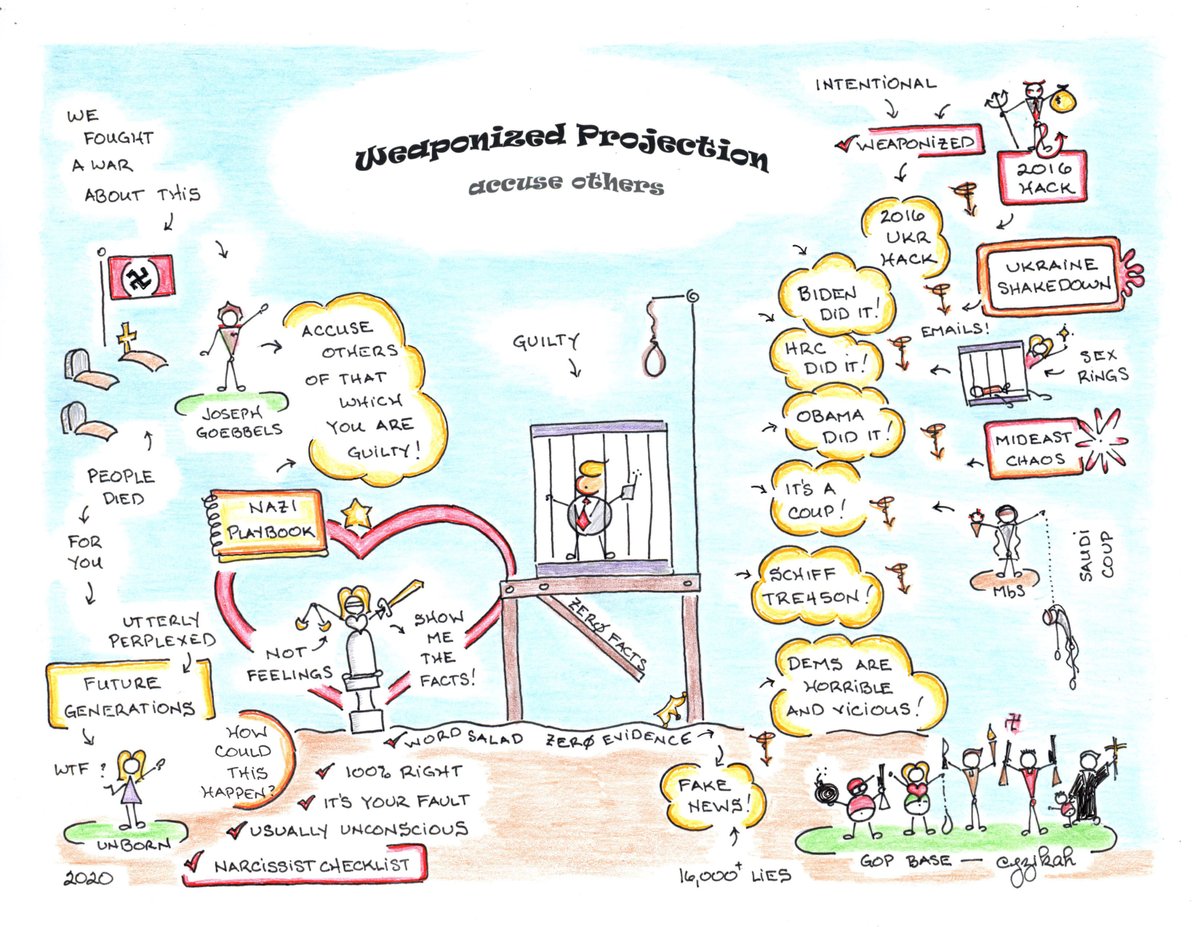 Weaponized Projection
accuse others
WE
FOUGHT
A WAR
ABOUT THIS
JOSEPH
GOEBBELS
ACCUSE
OTHERS
OF THAT
WHICH
YOU ARE
GUILTY!
PEOPLE
DIED
FOR
YOU
NAZI
PLAYBOOK
UTTERLY
PERPLEXED
FUTURE
GENERATIONS
WTF ?
?
UNBORN
2020
HOW
COULD
THIS
HAPPEN?
NOT
FEELINGS
SHOW
ME
THE
FACTS!
GUILTY
ZERØ FACTS
WORD SALAD ZERØ EVIDENCE
100% RIGHT
IT'S YOUR FAULT
USUALLY UNCONSCIOUS
NARCISSIST CHECKLIST
FAKE
NEWS!
16,000+ LIES
INTENTIONAL
WEAPONIZED
2016
HACK
2016
UKR
HACK
UKRAINE
SHAKEDOWN
BIDEN
DID IT!
EMAILS!
HRC
DID IT!
SEX
RINGS
OBAMA
DID IT!
MIDEAST
CHAOS
IT'S A
COUP!
SAUDI
COUP
MbS
SCHIFF
TRE45ON!
DEMS ARE
HORRIBLE
AND VICIOUS!
GOP BASE — cyzikah